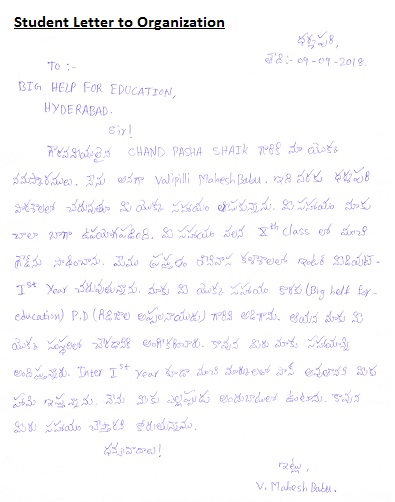 Student Letter to Organization
ధర్మపురి,
తేది:- 09-07-2018.
TO :-
BIG HELP FOR EDUCATION,
HYDERABAD.
Sir!
గౌరవనీయులైన CHAND PASHA SHAIK గారికి మా యొక్క
నమస్కారములు. నేను అనగా Valipilli Mahesh Babu. ఇది వరకు ధర్మపురి
పాఠశాలలో చదువుతూ మీ యొక్క సహాయం తీసుకున్నాను. మీ సహాయం మాకు
చాలా బాగా ఉపయోగపడింది. మీ సహాయం వలన Xth class లో మంచి
గ్రేడ్‌ను సాధించాను. మేము ప్రస్తుతం కళాశాలలో ఇంటర్ మీడియట్-
Ist Year చదువుతున్నాను. మాకు మీ యొక్క సహాయం కొరకు (Big help for-
education) P.D అప్పలనాయుడు) గారిని అడిగాను. ఆయన మాకు మీ
యొక్క సంస్థలో చేరడానికి అంగీకరించారు. కావున మీరు మాకు సహాయాన్ని
Inter Ist year కూడా మంచి మార్కులతో పాస్ అవుతానని మీకు
హామీ ఇస్తున్నాను. నేను మీకు ఎల్లప్పుడు అందుబాటులో ఉంటాను. కావున
మీరు సహాయం చేస్తారని కోరుతున్నాను.
ధన్యవాదాలు!
ఇట్లు,
V. Mahesh Babu.